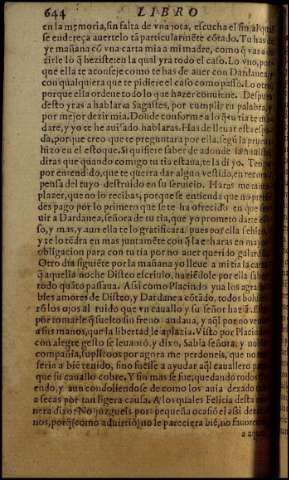 644 LIBRO
en la memoria, sin falta de vna jota, escucha el fin, al qual
se endereça auertelo tã particularmẽte cõtado. Tu has de
yr mañana cõ vna carta mia a mi madre, como q̃ vas a de
zirle lo q̃ heziste: en la qual yra todo el caso. Lo vno, por
que ella te aconseje como te has de auer con Dardanea, y
con qualquiera que te pidiere el caso como passó. Lo otro
porque ella ordene todo lo que haze conuiene. Despues
desto yras a hablar a Sagastes, por cumplir tu palabra, y
por mejor dezir mia. Donde conforme a lo q̃ tu tia te man
dare, y yo te he auisado hablaras. Has de lleuar estare
da, porque creo que te preguntara por ella, segũ la prueua
hizo en el estoque. Si quisiere saber de adonde la
diras que quando comigo tu tia estaua, te la di yo. Ten
por entendido, que te querra dar algun vestido, en recom
pensa del tuyo destruido en su seruicio. Haras me tanto
plazer, que no lo recibas, porque se entienda que no
des pago por lo primero que se te ha ofrecido en que ser
uir a Dardanea, señora de tu tia, que yo prometo darte
so, y mas, y aun ella te lo gratificara pues por ella
y te lo tẽdra en mas juntamẽte con q̃ la echaras en mayor
obligacion para con tu tia por no auer querido galardõ
Otro dia siguiẽte por la mañana yo lleue a mi tia la carta
q̃ aquella noche Disteo escriuio, haziẽdole por ella saber
todo quãto passaua. Assi como Placindo yua los agrada
bles amores de Disteo, y Dardanea cõtãdo, todos boluie
rõ los ojos al ruido que vn cauallo y su señor hazia. El
por tomarle q̃ suelto su freno andaua, y aql por no venir
a sus manos, que la libertad le aplazia. Visto por Placindo
con alegre gesto se leuantó, y dixo, Sabia señora, y noble
compañia, suplico os por agora me perdoneis, que no
seria a biẽ tenido, sino fuesse a ayudar aql cauallero para
que su cauallo cobre. Y sin mas se fue, quedando todos
endo, y aun condoliendose de como los auia dexado
a secas por tan ligera causa. A los quales Felicia desta ma
nera dixo: No juzgueis por pequeña ocasiõ el assi dexar
nos, porq̃ (como aduirtio) no le pareciera biẽ, no fauorecer
a aquel